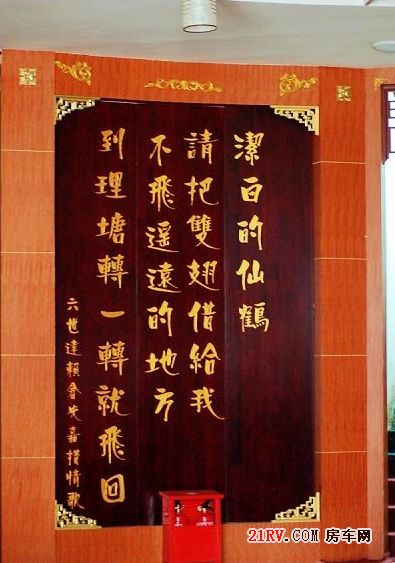 潔白的仙鶴
請把雙翅借給我
不飛遥遠的地方
到理塘轉一轉就飛回
六世達賴倉央嘉措情歌
21RV.COM 房车网